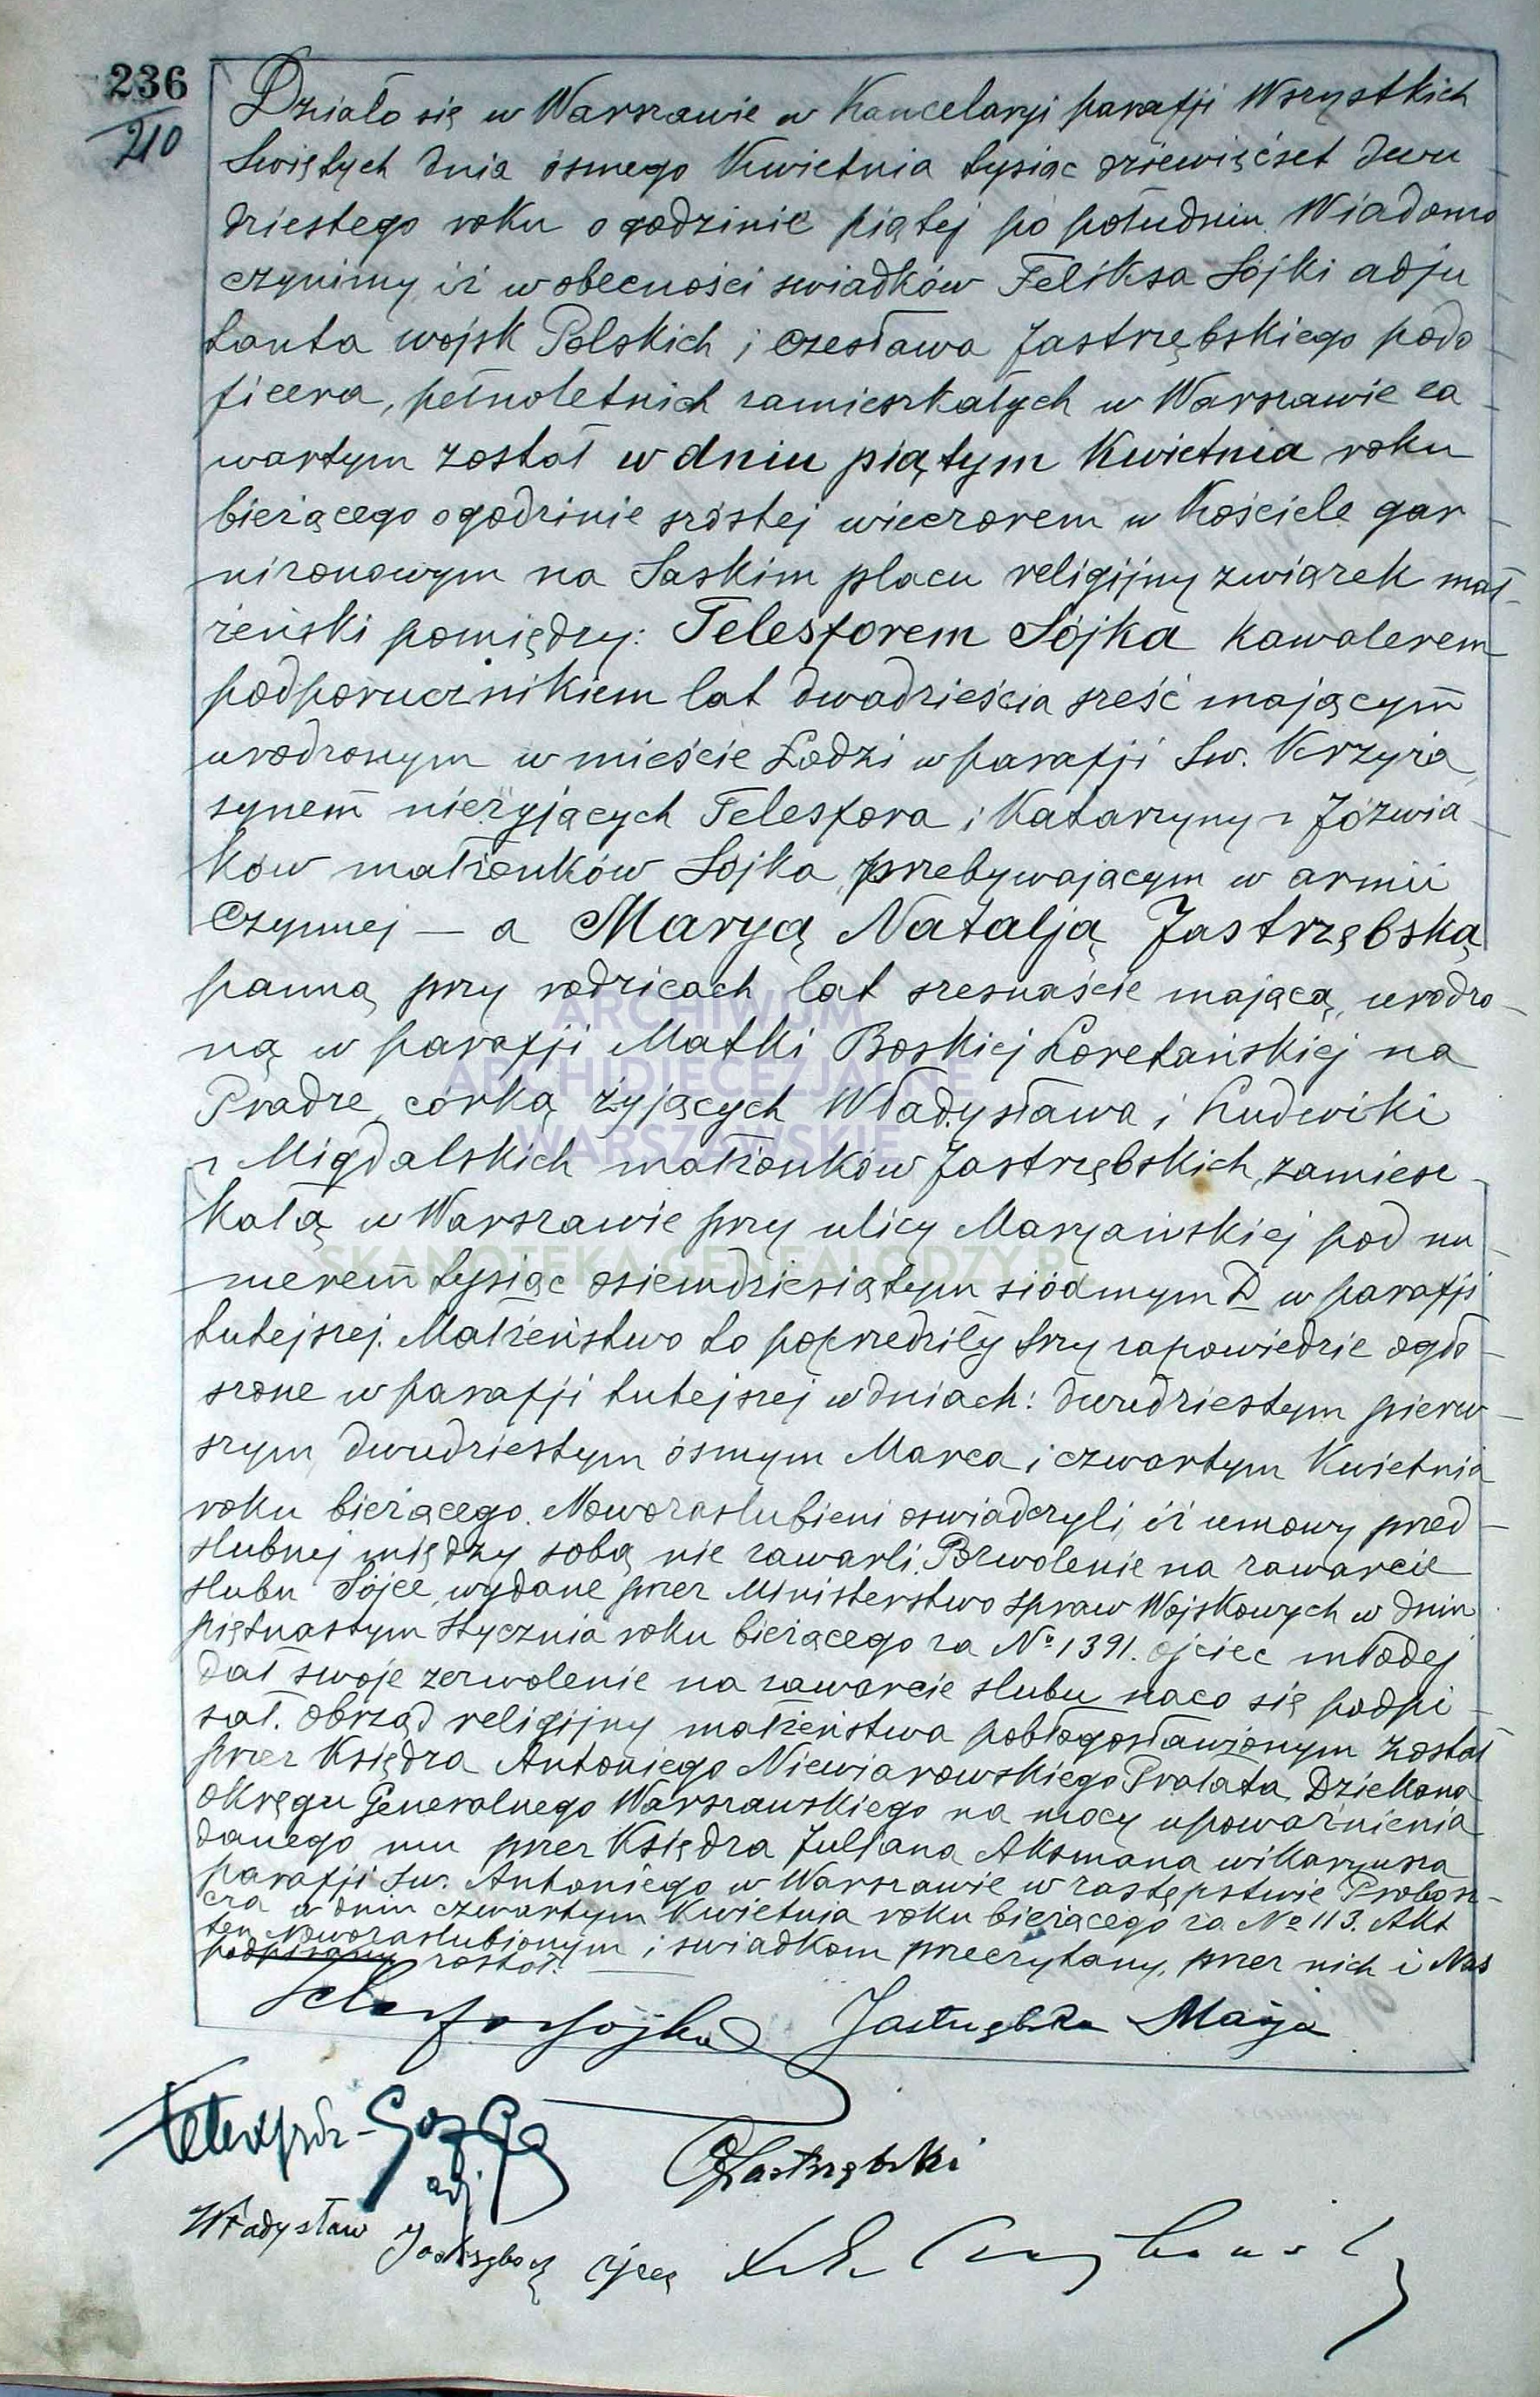 236
210
Działo się w Warszawie w Kancelaryi parafji Wszystkich
Świętych dnia ósmego Kwietnia tysiąc dziewięćset dwu
dziestego roku o godzinie piątej po południu. Wiadomo
czynimy, iż w obecności swiadków Feliksa Sójki adju
tanta wojsk Polskich i Czesława Jastrzębskiego podo
ficera, pełnoletnich zamieszkałych w Warszawie za
wartym został w dniu piątym Kwietnia roku
bieżącego o godzinie szóstej wieczorem w Kościele gar
nizonowym na Saskim placu religijny związek mał
żeński pomiędzy: Telesforem Sójka kawalerem
podporucznikiem lat dwadzieścia sześć mającym
urodzonym w mieście Łodzi w parafji Św. Krzyża,
synem nieżyjących Telesfora i Katarzyny z Józwia
ków małżonków Sójka, przebywającym w armii
Czynnej — a Maryą Natalją Jastrzębską
panną przy rodzicach lat szesnaście mającą, urodzo
ną w parafji Matki Boskiej Loretańskiej na
Pradze, córką żyjących Władysława i Ludwiki
z Migdalskich małżonków Jastrzębskich, zamiesz
kałą w Warszawie przy ulicy Maryańskiej pod nu
merem tysiąc osiemdziesiątym siódmym D w parafji
tutejszej. Małżeństwo to poprzedziły trzy zapowiedzie ogło
szone w parafji tutejszej w dniach: dwudziestym pierw
szym, dwudziestym ósmym Marca i czwartym Kwietnia
roku bieżącego. Nowozaslubieni oswiadczyli, iż umowy przed
slubnej między sobą nie zawarli. Pozwolenie na zawarcie
slubu Sójce, wydane przez Ministerstwo Spraw Wojskowych w dniu
piętnastym Stycznia roku bieżącego za Nº 1391. Ojciec młodej
dał swoje zezwolenie na zawarcie slubu naco się podpi
sał. Obrząd religijny małżeństwa pobłogosławionym został
przez Księdza Antoniego Niewiarowskiego Prałata, Dziekana
Okręgu Generalnego Warszawskiego na mocy upoważnienia
danego mu przez Księdza Juliana Aksmana wikaryusza
parafji św. Antoniego w Warszawie w zastępstwie Probosz
cza w dniu czwartym Kwietnia roku bieżącego za Nº 113. Akt
ten Nowozaslubionym i swiadkom przeczytany, przez nich i Nas
podpisany został.
Telesfor Sójka Jastrzębska Marja
Telesfor
adj.
Jastrzębski
Władysław ojciec
ARCHIWUM
ARCHIDIECEZJALNE
WARSZAWSKIE
SKANOTEKA.GENEALODZY.PL